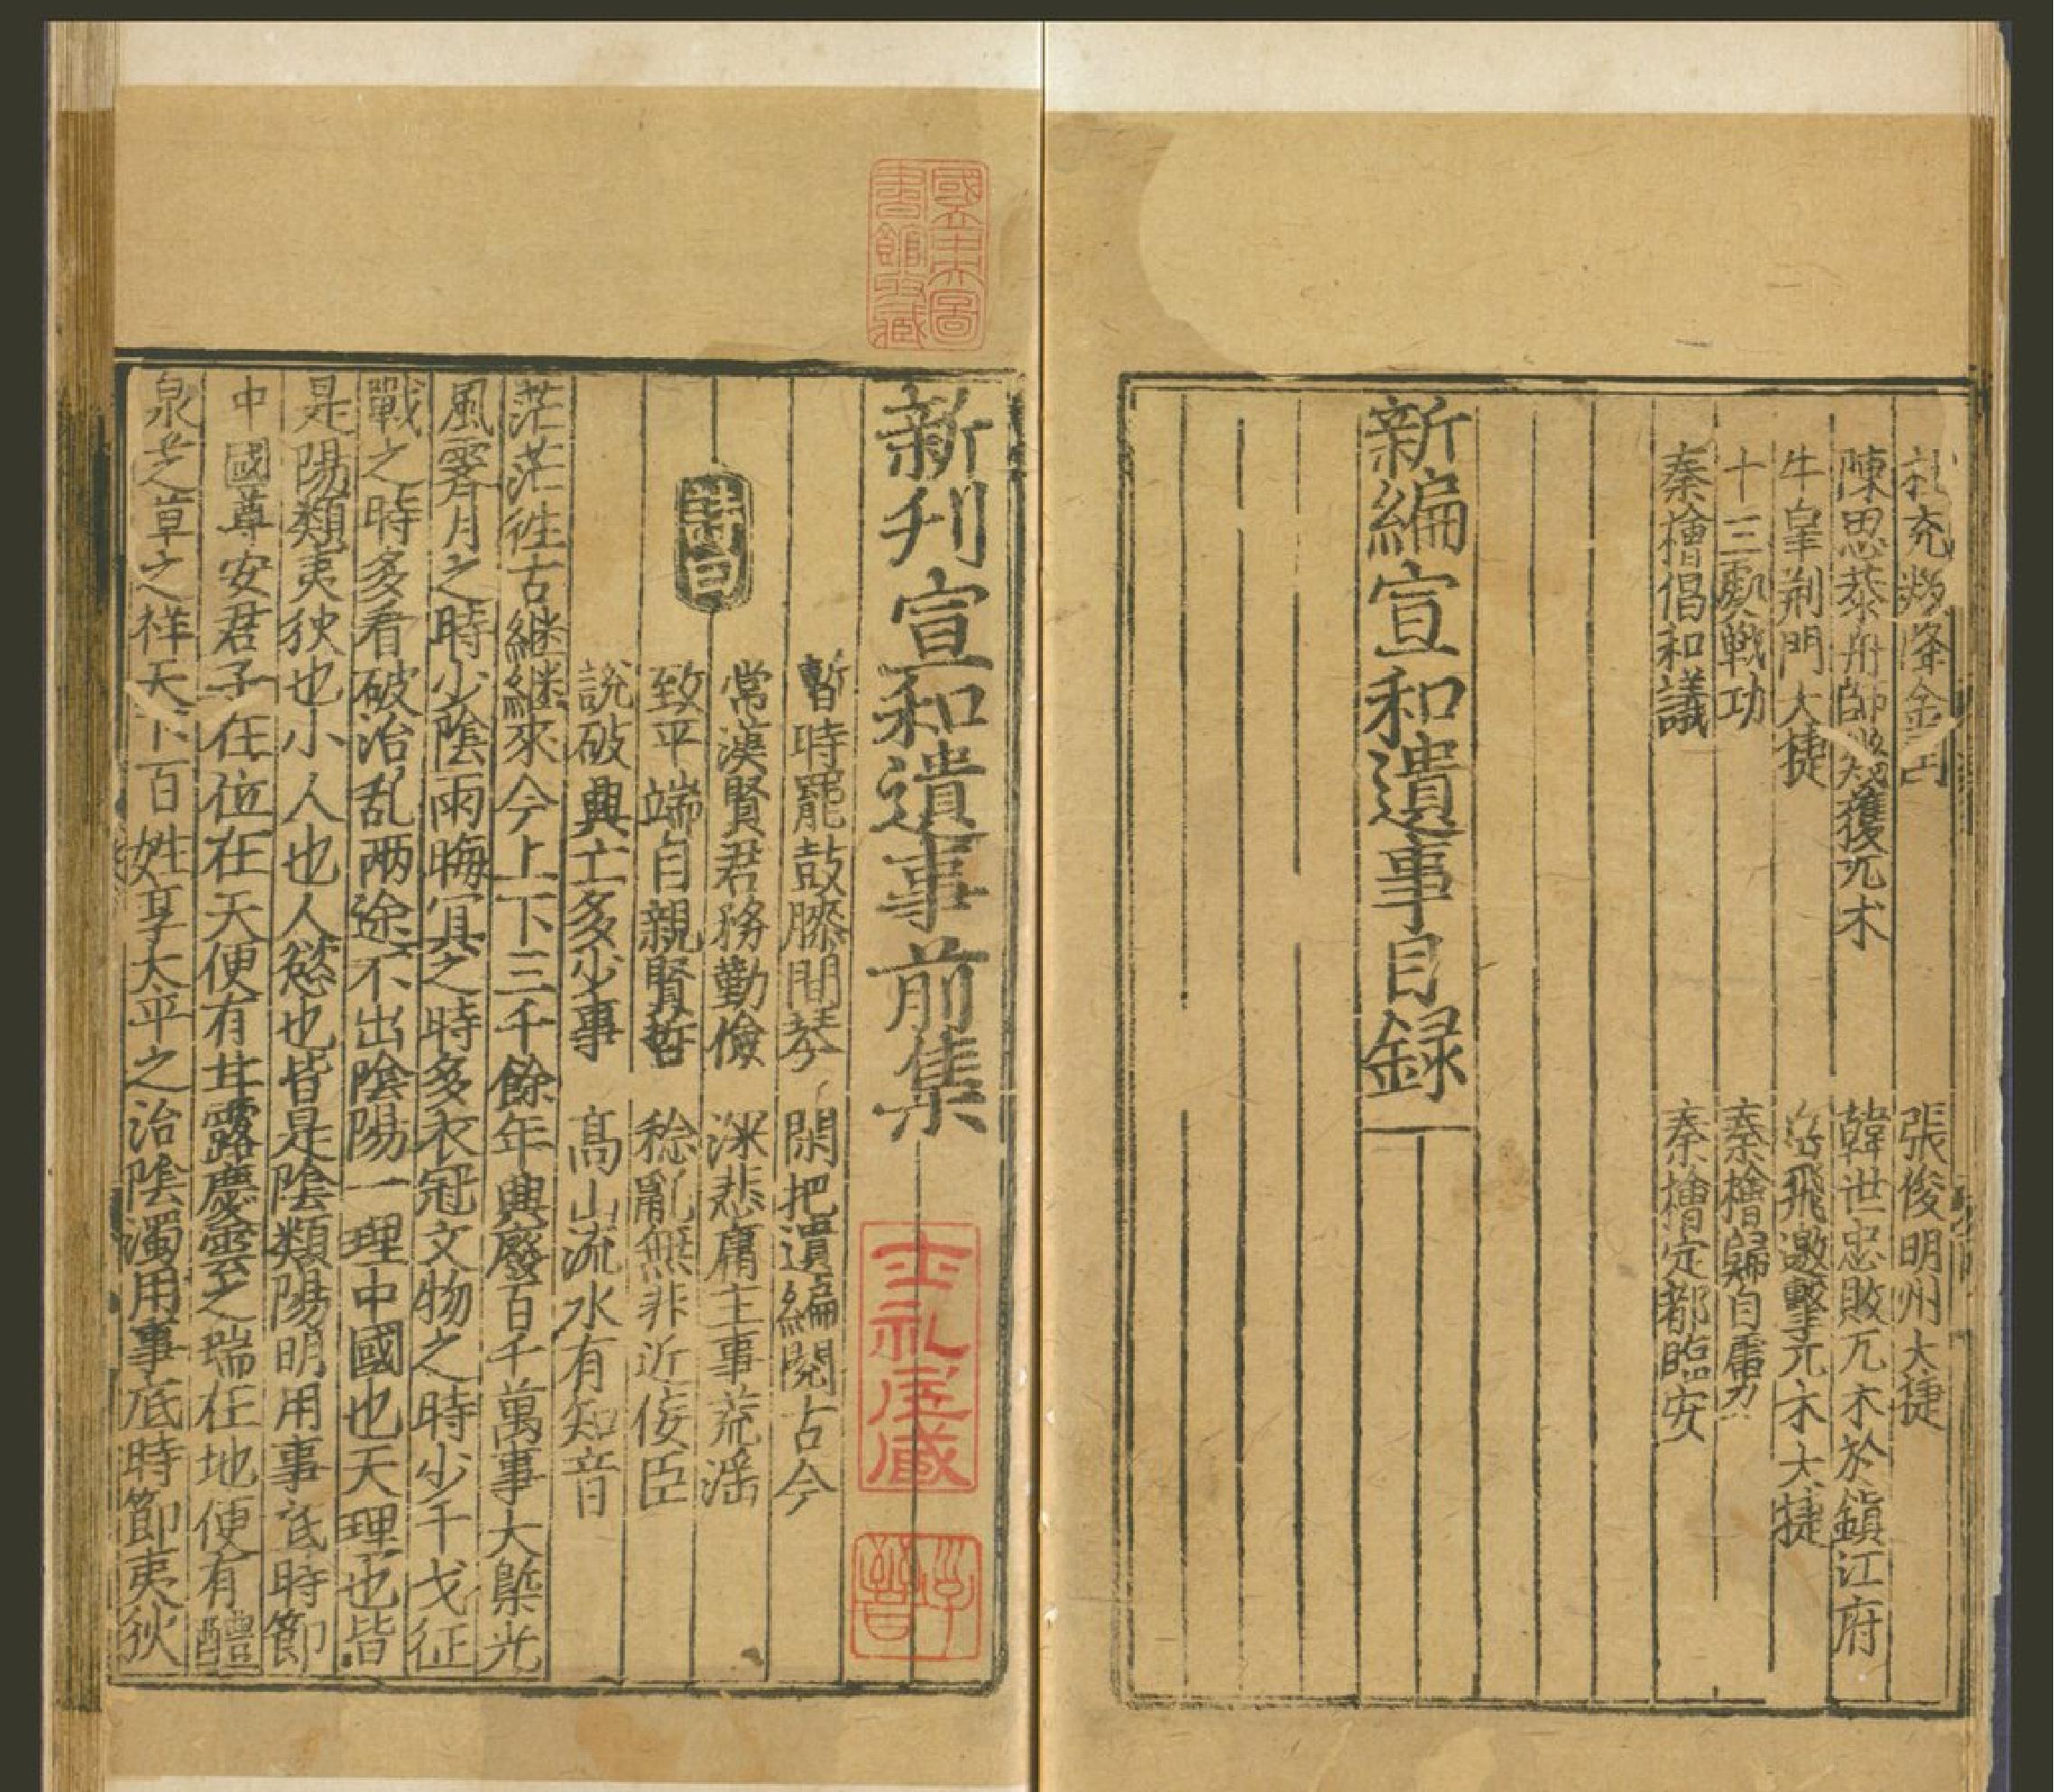 杜充㑹降金国 張俊明州大捷
陳思恭舟師㡬獲兀术 韓世忠敗兀术於鎮江府
牛皐荆門大捷 岳飛邀擊兀术大捷
十三處戰功 秦檜歸自虜
秦檜倡和議 秦檜定都臨安
新編宣和遺事目録
國立中央圖書館收藏
新刋宣和遺事前集
士礼居藏
暫時罷鼓膝間琴 閑把遺編閱古今
常漠賢君務勤儉 深悲庸主事荒滛
詩曰
致平端自親賢哲 稔亂無非近佞臣
說破興亡多少事 高山流水有知音
茫茫徃古継継來今上下三千餘年興廢百千萬事大槩光
風霽月之時少陰雨晦冥之時多衣冠文物之時少干戈征
戰之時多看破治乱两途不出陰陽一理中國也天理也皆
是陽類夷狄也小人也人慾也皆是陰類陽明用事底時節
中國尊安君子在位在天便有甘露慶雲之瑞在地便有醴
泉芝草之祥天下百姓享太平之治陰濁用事底時節夷狄